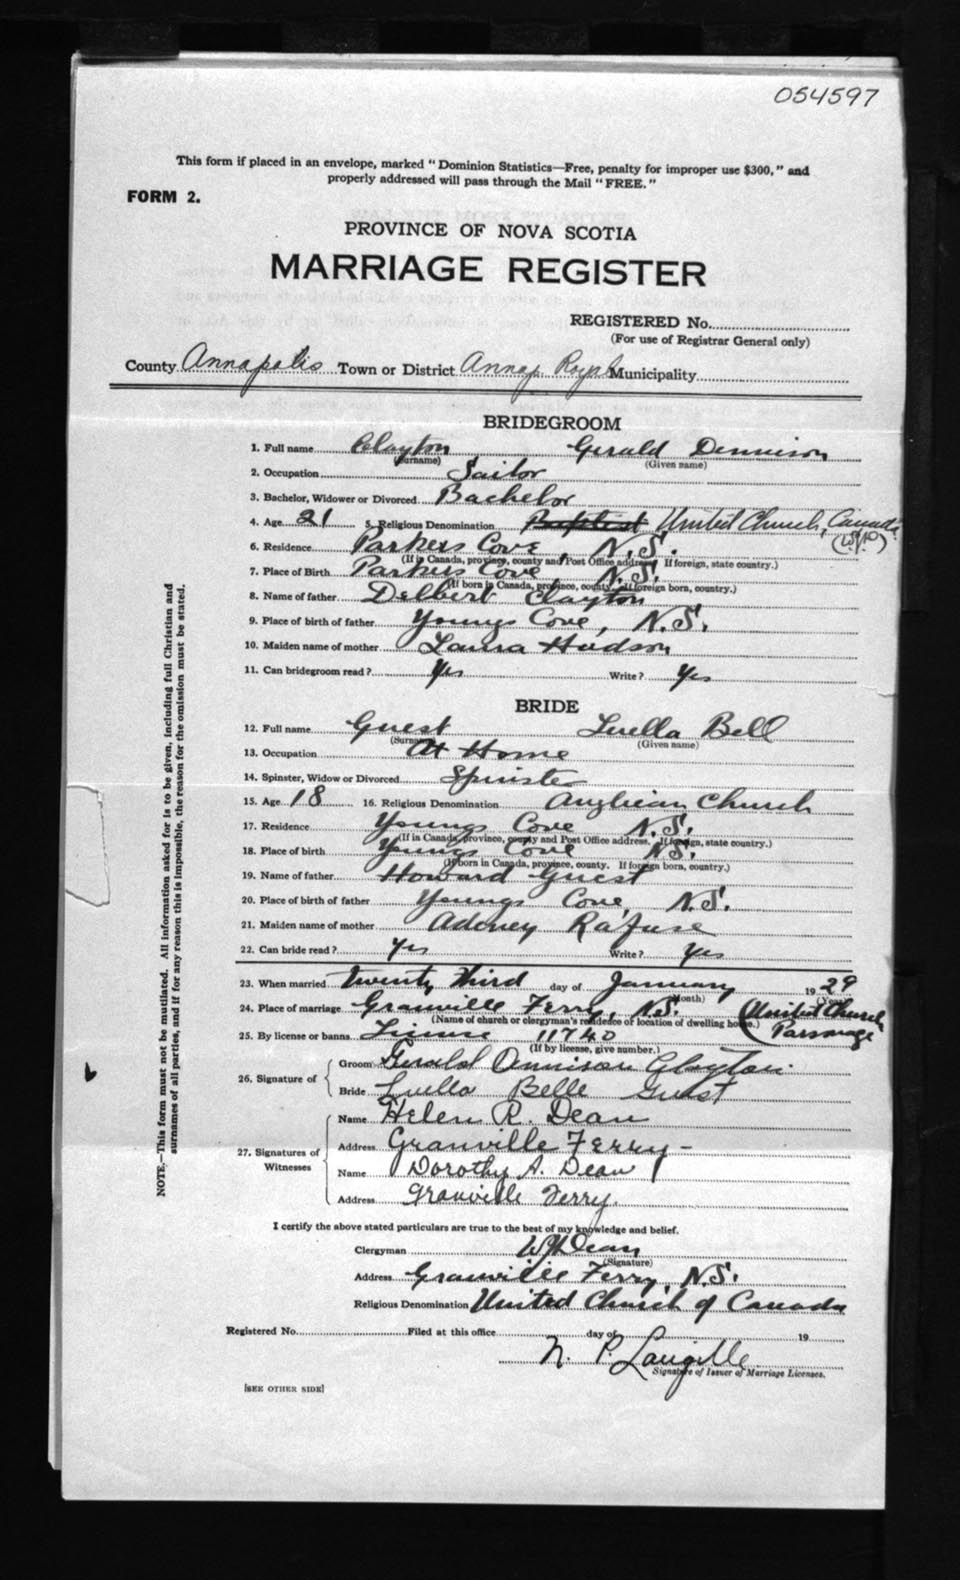 054597
This form if placed in an envelope, marked "Dominion Statistics—Free, penalty for improper use $300," and
properly addressed will pass through the Mail "FREE."
FORM 2.
PROVINCE OF NOVA SCOTIA
MARRIAGE REGISTER
REGISTERED No.
(For use of Registrar General only)
County Annapolis Town or District Annap. Royal Municipality
BRIDEGROOM
1. Full name Clayton Gerald Dennison
(Surname) (Given name)
2. Occupation Sailor
3. Bachelor, Widower or Divorced Bachelor
4. Age 21 5. Religious Denomination Baptist United Church, Canada
6. Residence Parkers Cove, N.S.
(If in Canada, province, county and Post Office address. If foreign, state country.)
7. Place of Birth Parkers Cove N.S.
(If born in Canada, province, county. If foreign born, country.)
8. Name of father Delbert Clayton
9. Place of birth of father Youngs Cove, N.S.
10. Maiden name of mother Laura Hudson
11. Can bridegroom read? Yes Write? Yes
BRIDE
12. Full name Guest Luella Bell
(Surname) (Given name)
13. Occupation At Home
14. Spinster, Widow or Divorced Spinster
15. Age 18 16. Religious Denomination Anglican Church
17. Residence Youngs Cove N.S.
(If in Canada, province, county and Post Office address. If foreign, state country.)
18. Place of birth Youngs Cove N.S.
(If born in Canada, province, county. If foreign born, country.)
19. Name of father Howard Guest
20. Place of birth of father Youngs Cove, N.S.
21. Maiden name of mother Adeney Rafuse
22. Can bride read? Yes Write? Yes
23. When married twenty third day of January 1929
(Month) (Year)
24. Place of marriage Granville Ferry, N.S. (United Church Parsonage
(Name of church or clergyman's residence or location of dwelling house.)
25. By license or banns License 11740
(If by license, give number.)
26. Signature of { Groom Gerald Dennison Clayton
Bride Luella Belle Guest
27. Signatures of Witnesses { Name Helen R. Dean
Address Granville Ferry -
Name Dorothy A. Dean
Address Granville Ferry.
I certify the above stated particulars are true to the best of my knowledge and belief.
Clergyman W J Dean
(Signature)
Address Granville Ferry, N.S.
Religious Denomination United Church of Canada
Registered No. Filed at this office day of 19
N. P. Langille
Signature of Issuer of Marriage Licenses.
[SEE OTHER SIDE]
NOTE.—This form must not be mutilated. All information asked for is to be given, including full Christian and
surnames of all parties, and if for any reason this is impossible, the reason for the omission must be stated.